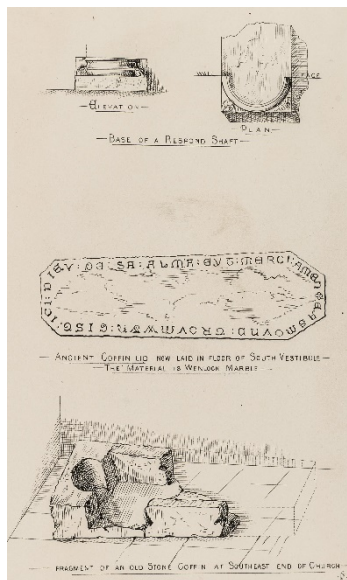 WALL FACE
—ELEVATION—
PLAN—
—BASE OF A RESPOND SHAFT—
DIEV: DE SA: ALMA: EVT: MERCI: AMEN
— ANCIENT COFFIN LID NOW LAID IN FLOOR OF SOUTH VESTIBULE—
— THE MATERIAL IS WENLOCK MARBLE —
— FRAGMENT OF AN OLD STONE COFFIN AT SOUTHEAST END OF CHURCH—